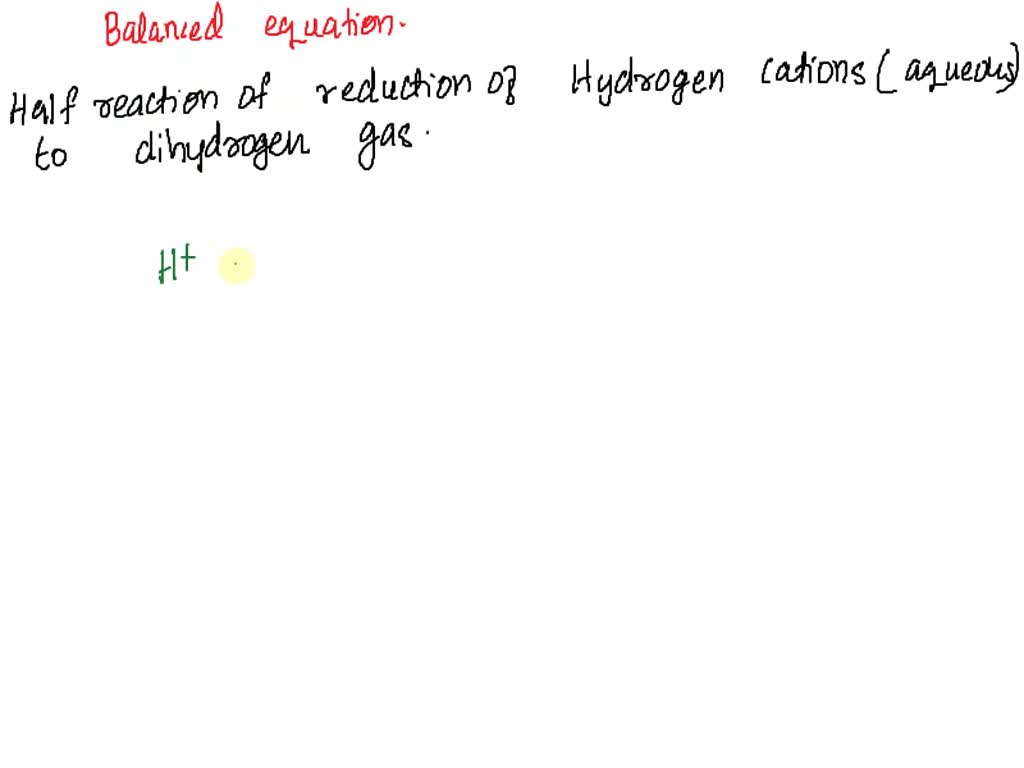 Balanced equation.
Half reaction of reduction of Hydrogen cations (aqueous)
to dihydrogen gas.
H+